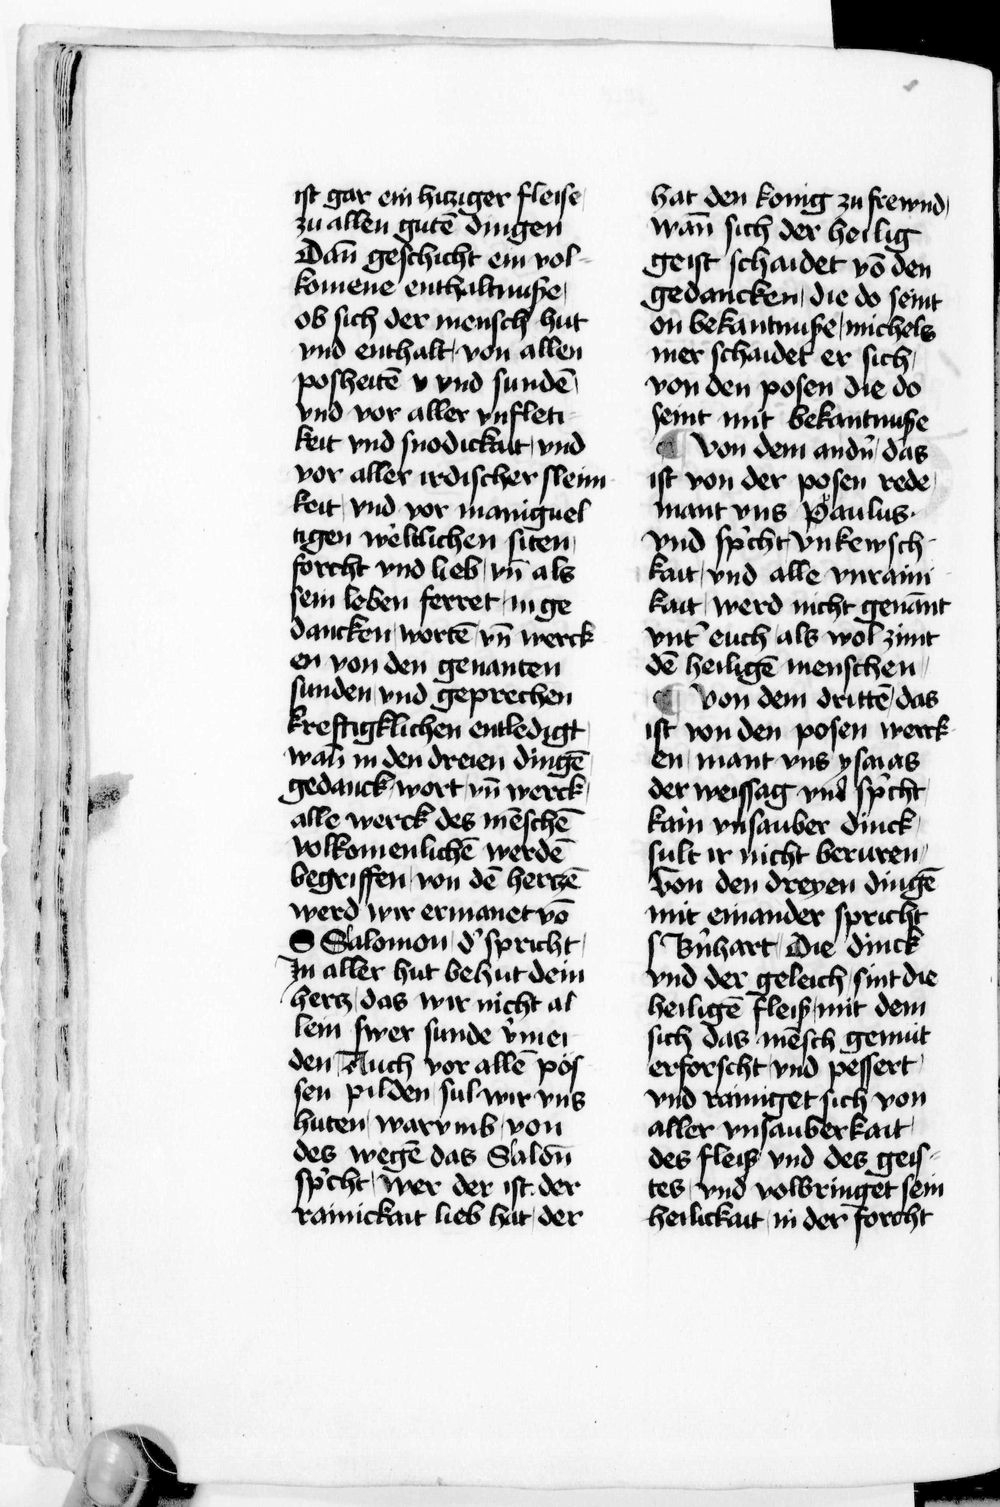 ist gar ein hitziger fleise
zu allen gutē dingen
Dan̄ geschicht ein vol-
komene enthaltnuße
ob sich der mensch hut
vnd enthalt von allen
posheitē v vnd sundē
vnd vor aller vnfleti-
keit vnd snodickait vnd
vor aller irdischer sleim
keit vnd vor maniguel
tigen weltlichen siten
forcht vnd lieb vn̄ als
sein leben ferret in ge
dancken wortē vn̄ werck
en von den genanten
sunden vnd geprechen
kreftigklichen entledigt
wan̄ in den dreien dingē
gedanck wort vn̄ werck
alle werck des mēschē
volkomenlichē werdē
begriffen von dē hertzē
werd wir ermanet vō
S Salomon d' spricht
In aller hut behut dein
hertz das wir nicht al
lein swer sunde v̓mei
den Auch vor allē pös
sen pilden sul wir vns
huten warvmb von
des wegē das Salon̄
sp̓cht wer der ist der
rainickait lieb hat der
hat den konig zu frewnd
wan̄ sich der heilig
geist schaidet vō den
gedancken die do seint
on bekantnuße michels
mer schaidet er sich
von den posen die do
seint mit bekantnuße
¶ Von dem andn̓ das
ist von der posen rede
mant vns Paulus
vnd sp̓cht vnkewsch
kait vnd alle vnraini
kait werd nicht genān̄t
vnt̓ euch als wol zimt
dē heiligē menschen
¶ Von dem drittē das
ist von den posen werck
en mant vns ysaias
der weissag vnd sp̓cht
kain vnsauber dinck
sult ir nicht beruren
Von den dreyen dingē
mit einander spricht
s Bn̓hart Die dinck
vnd der geleich sint die
heiligē fleiß mit dem
sich das mēsch gemüt
erforscht vnd pessert
vnd rainiget sich von
aller vnsauberkait
des fleiß vnd des geis-
tes vnd volbringet sein
heilickait in der forcht